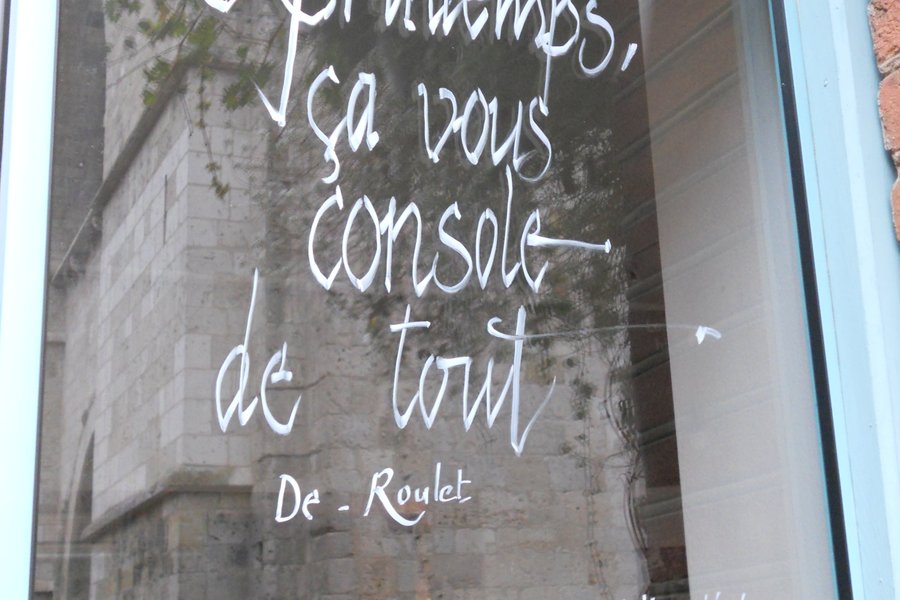 printemps,
ça vous
console
de tout
De - Roulet